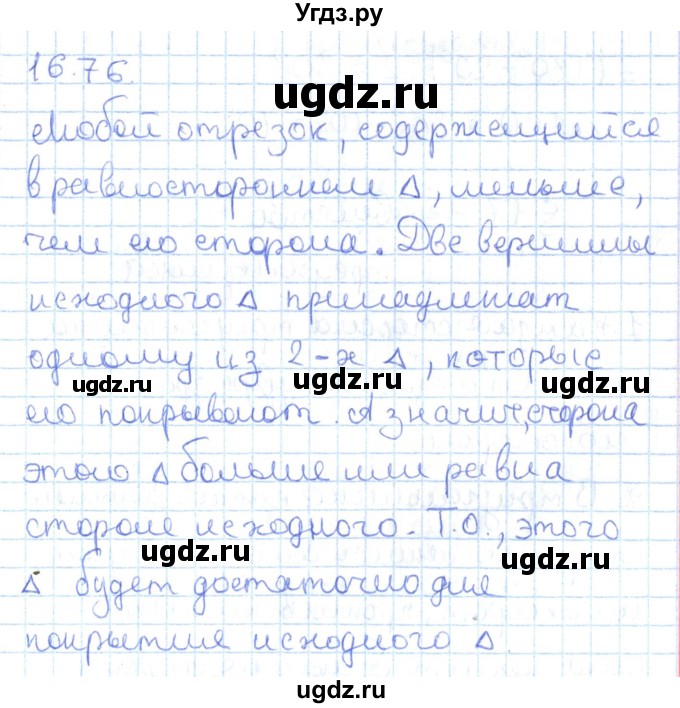 Угдз.ру
16.76.
ugdz.ru
Любой отрезок, содержащийся
в равностороннем Δ, меньше,
ugdz.ru
ugdz.ru
чем его сторона. Две вершины
исходного Δ принадлежат
ugdz.ru
одному из 2-х Δ, которые
ugdz.ru
ugdz.ru
его покрывают. А значит, сторона
этого Δ больше или равна
ugdz.ru
стороне исходного. Т.О., этого
ugdz.ru
ugdz.ru
Δ будет достаточно для
покрытия исходного Δ
ugdz.ru